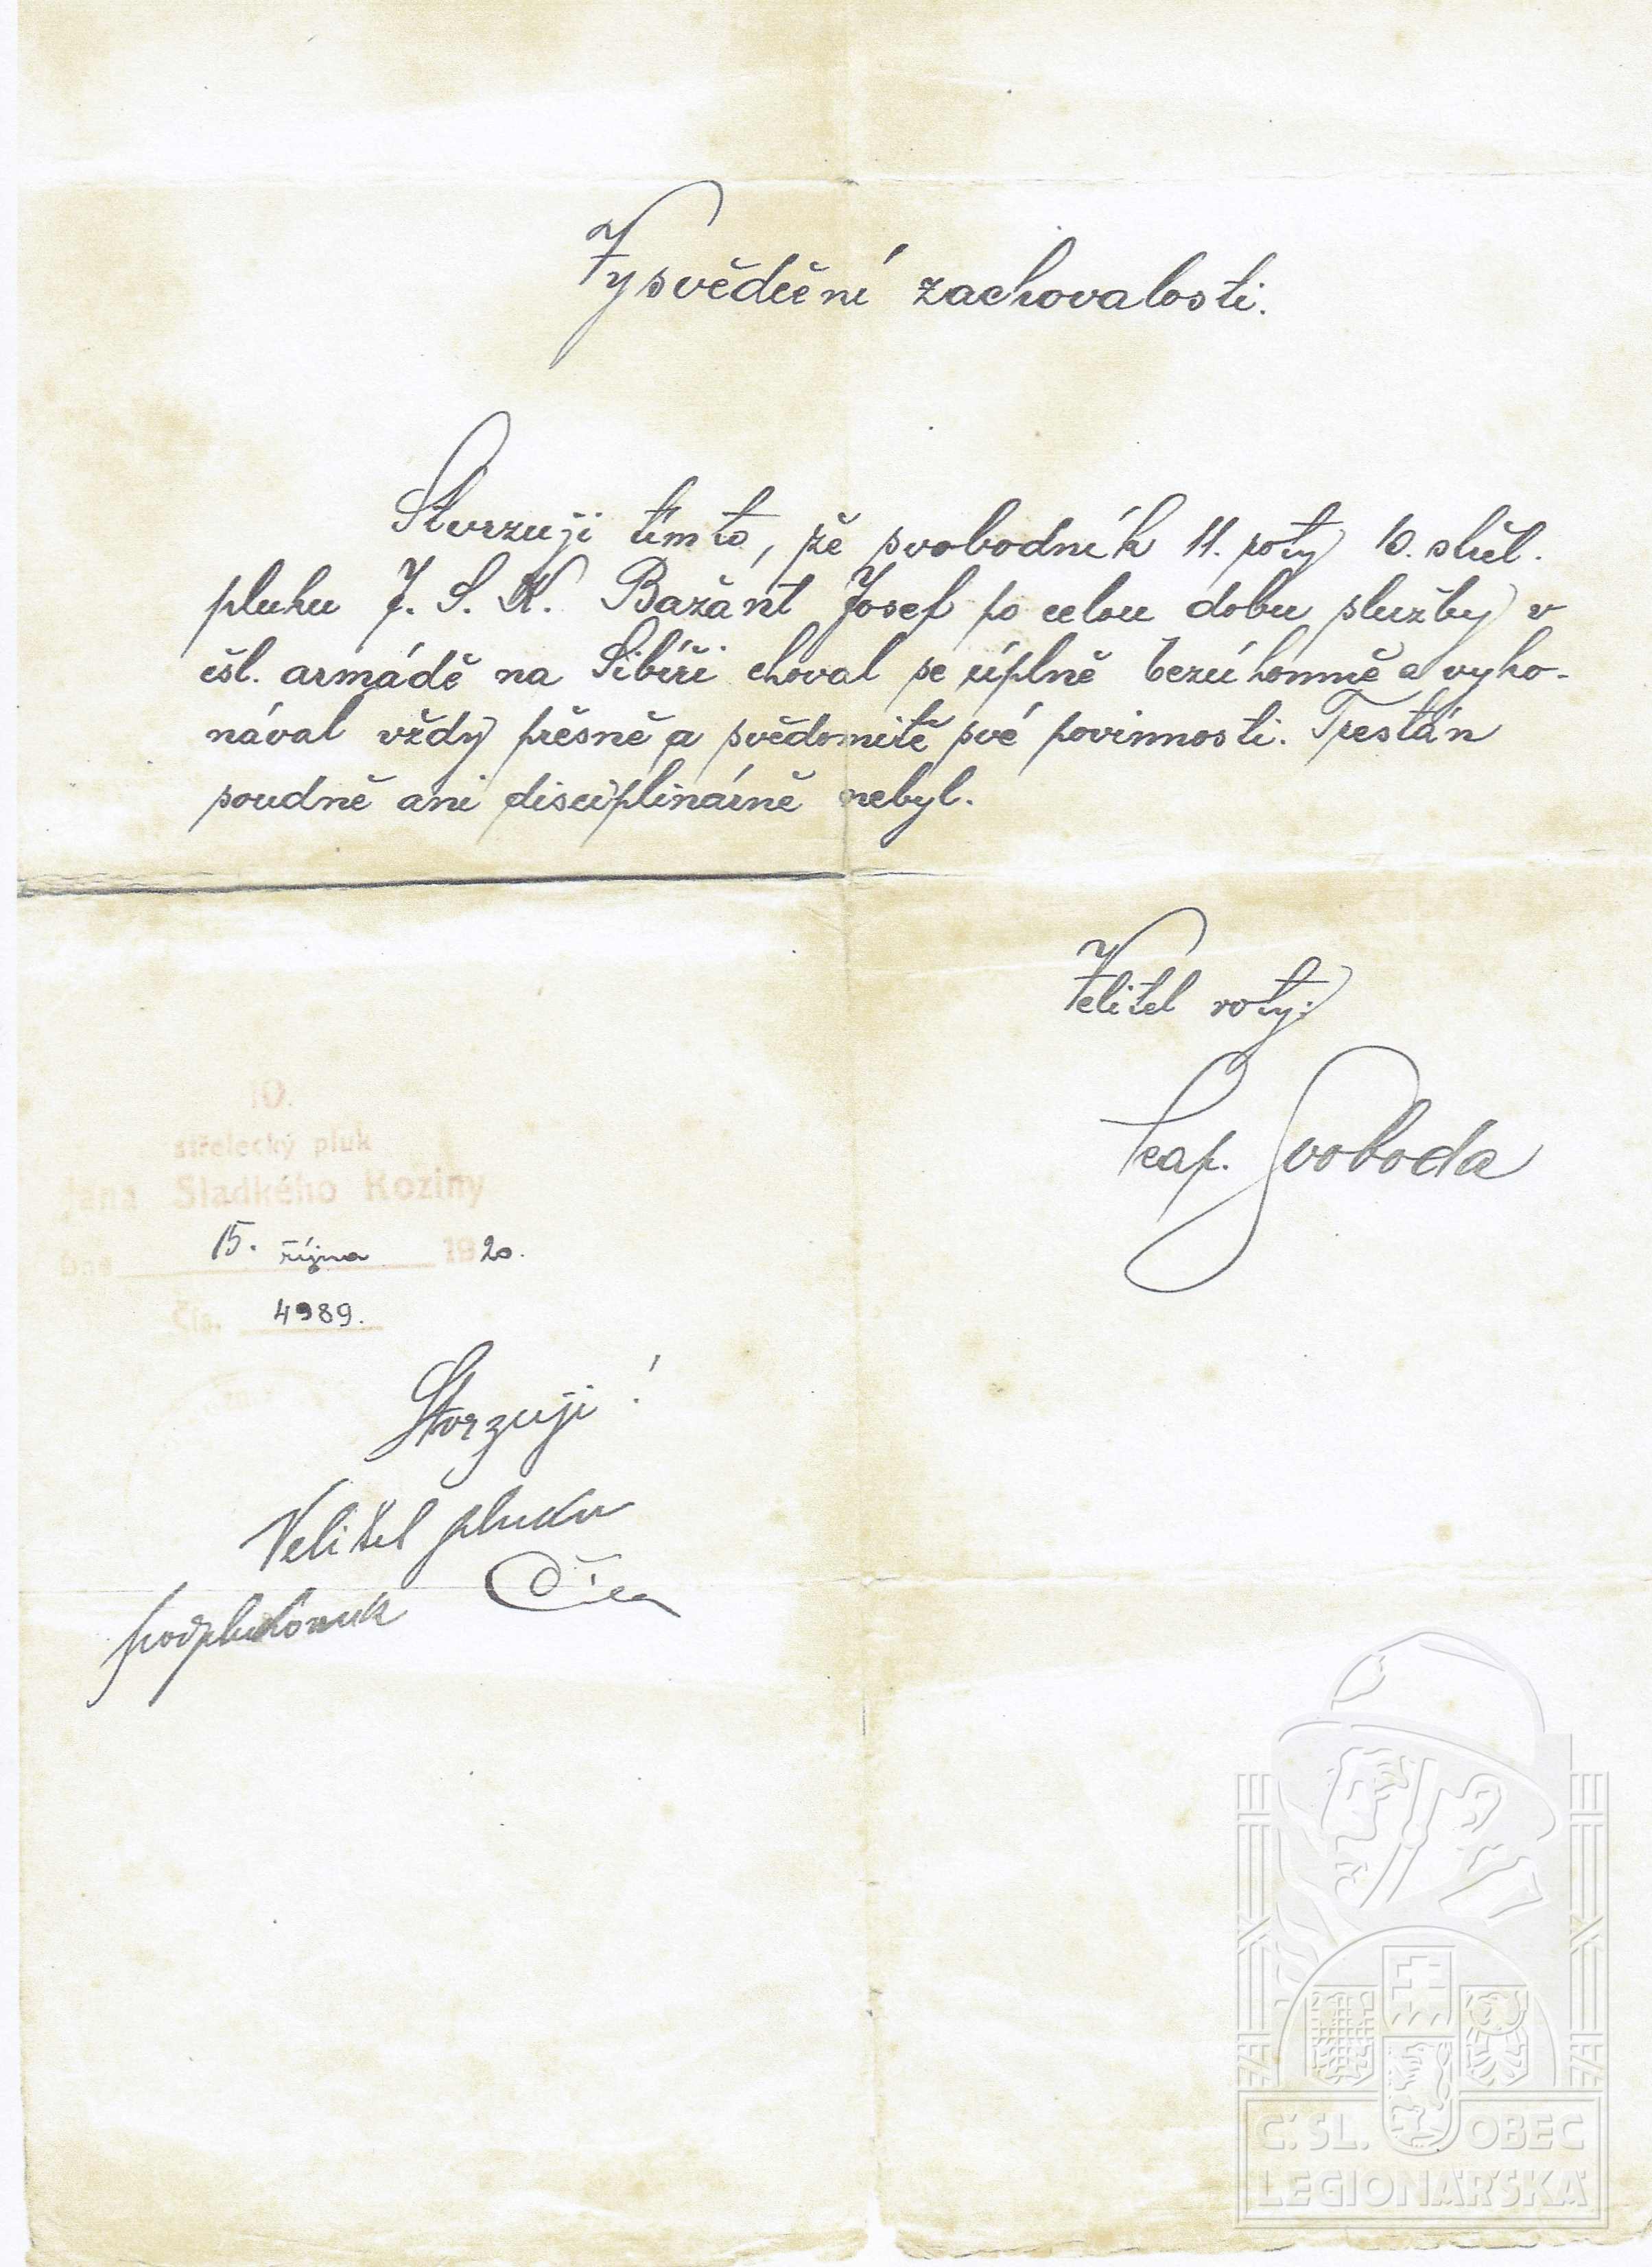 Vysvědčení zachovalosti.
Stvrzuji tímto, že svobodník 11. roty 10. střel.
pluku J. S. K. Bažánt Josef po celou dobu služby v
čsl. armádě na Sibíři choval se úplně bezúhonně a vyko-
nával vždy přesně a svědomitě své povinnosti. Trestán
soudně ani disciplinárně nebyl.
Velitel roty:
kap. Svoboda
10.
střelecký pluk
Jana Sladkého Koziny
Dne 15. října 1920.
Čís. 4989.
Stvrzuji!
Velitel pluku
podplukovník
Č.SL. OBEC
LEGIONÁŘSKÁ